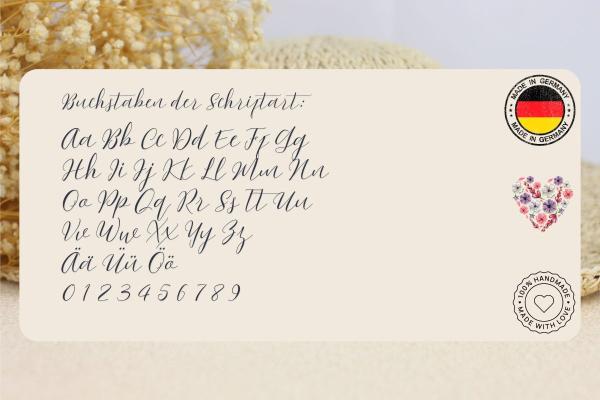 Buchstaben der Schriftart:
Aa Bb Cc Dd Ee Ff Gg
Hh Ii Jj Kk Ll Mm Nn
Oo Pp Qq Rr Ss Tt Uu
Vv Ww Xx Yy Zz
Ää Üü Öö
0 1 2 3 4 5 6 7 8 9
MADE IN GERMANY
MADE IN GERMANY
100% HANDMADE
MADE WITH LOVE